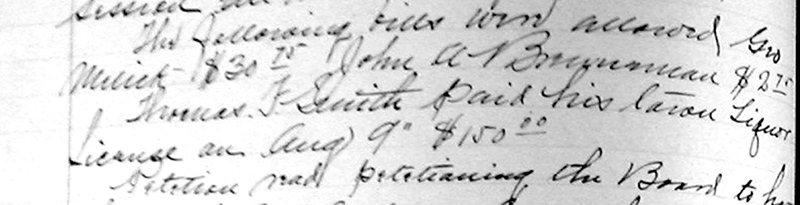 The following bills were allowed Geo
$30 75 John A Brownman $2 75
Thomas F Smith paid his Liquor
License on Aug 9" $150 00
Petetion read petetioning the Board to